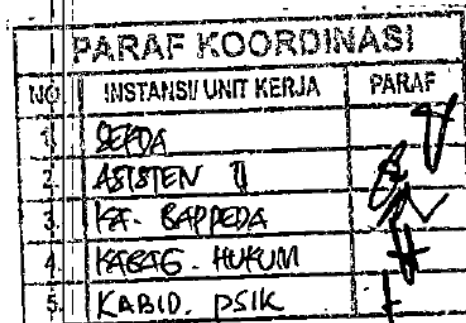 PARAF KOORDINASI
NO. INSTANSI/ UNIT KERJA PARAF
1. SEKDA
2. ASISTEN II
3. KA. BAPPEDA
4. KABAG. HUKUM
5. KABID. PSIK